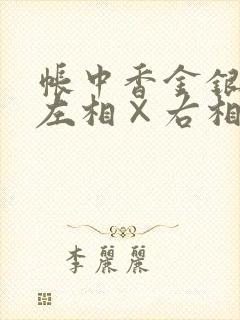 帳中香金銀
左相×右相
李麗麗